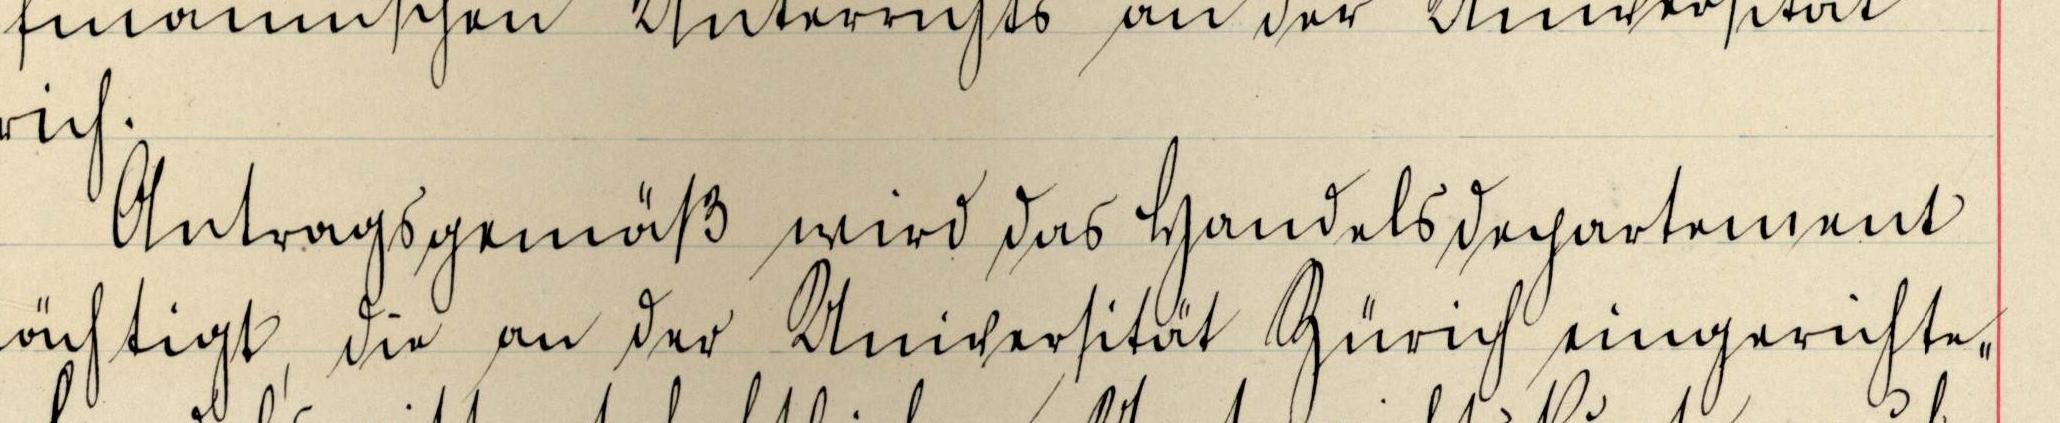 fmännischen Unterrichts an der Universität
rich.
Antragsgemäß wird das Handelsdepartement
ächtigt, die an der Universität Zürich eingerichte„